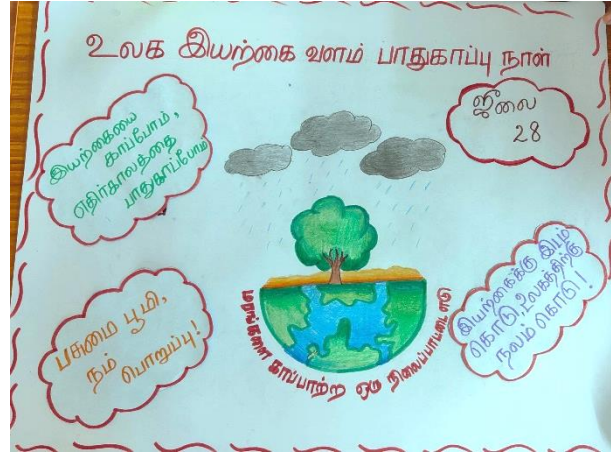 உலக இயற்கை வளம் பாதுகாப்பு நாள்
ஜீலை
28
இயற்கையை
காப்போம்,
எதிர்காலத்தை
பாதுகாப்போம்
பசுமை பூமி,
நம்
பொறுப்பு!
மரங்களை காப்பாற்ற ஒரு நிலைப்பாட்டை எடு
இயற்கைக்கு இடம்
கொடு,உலகத்திற்கு
நலம் கொடு!